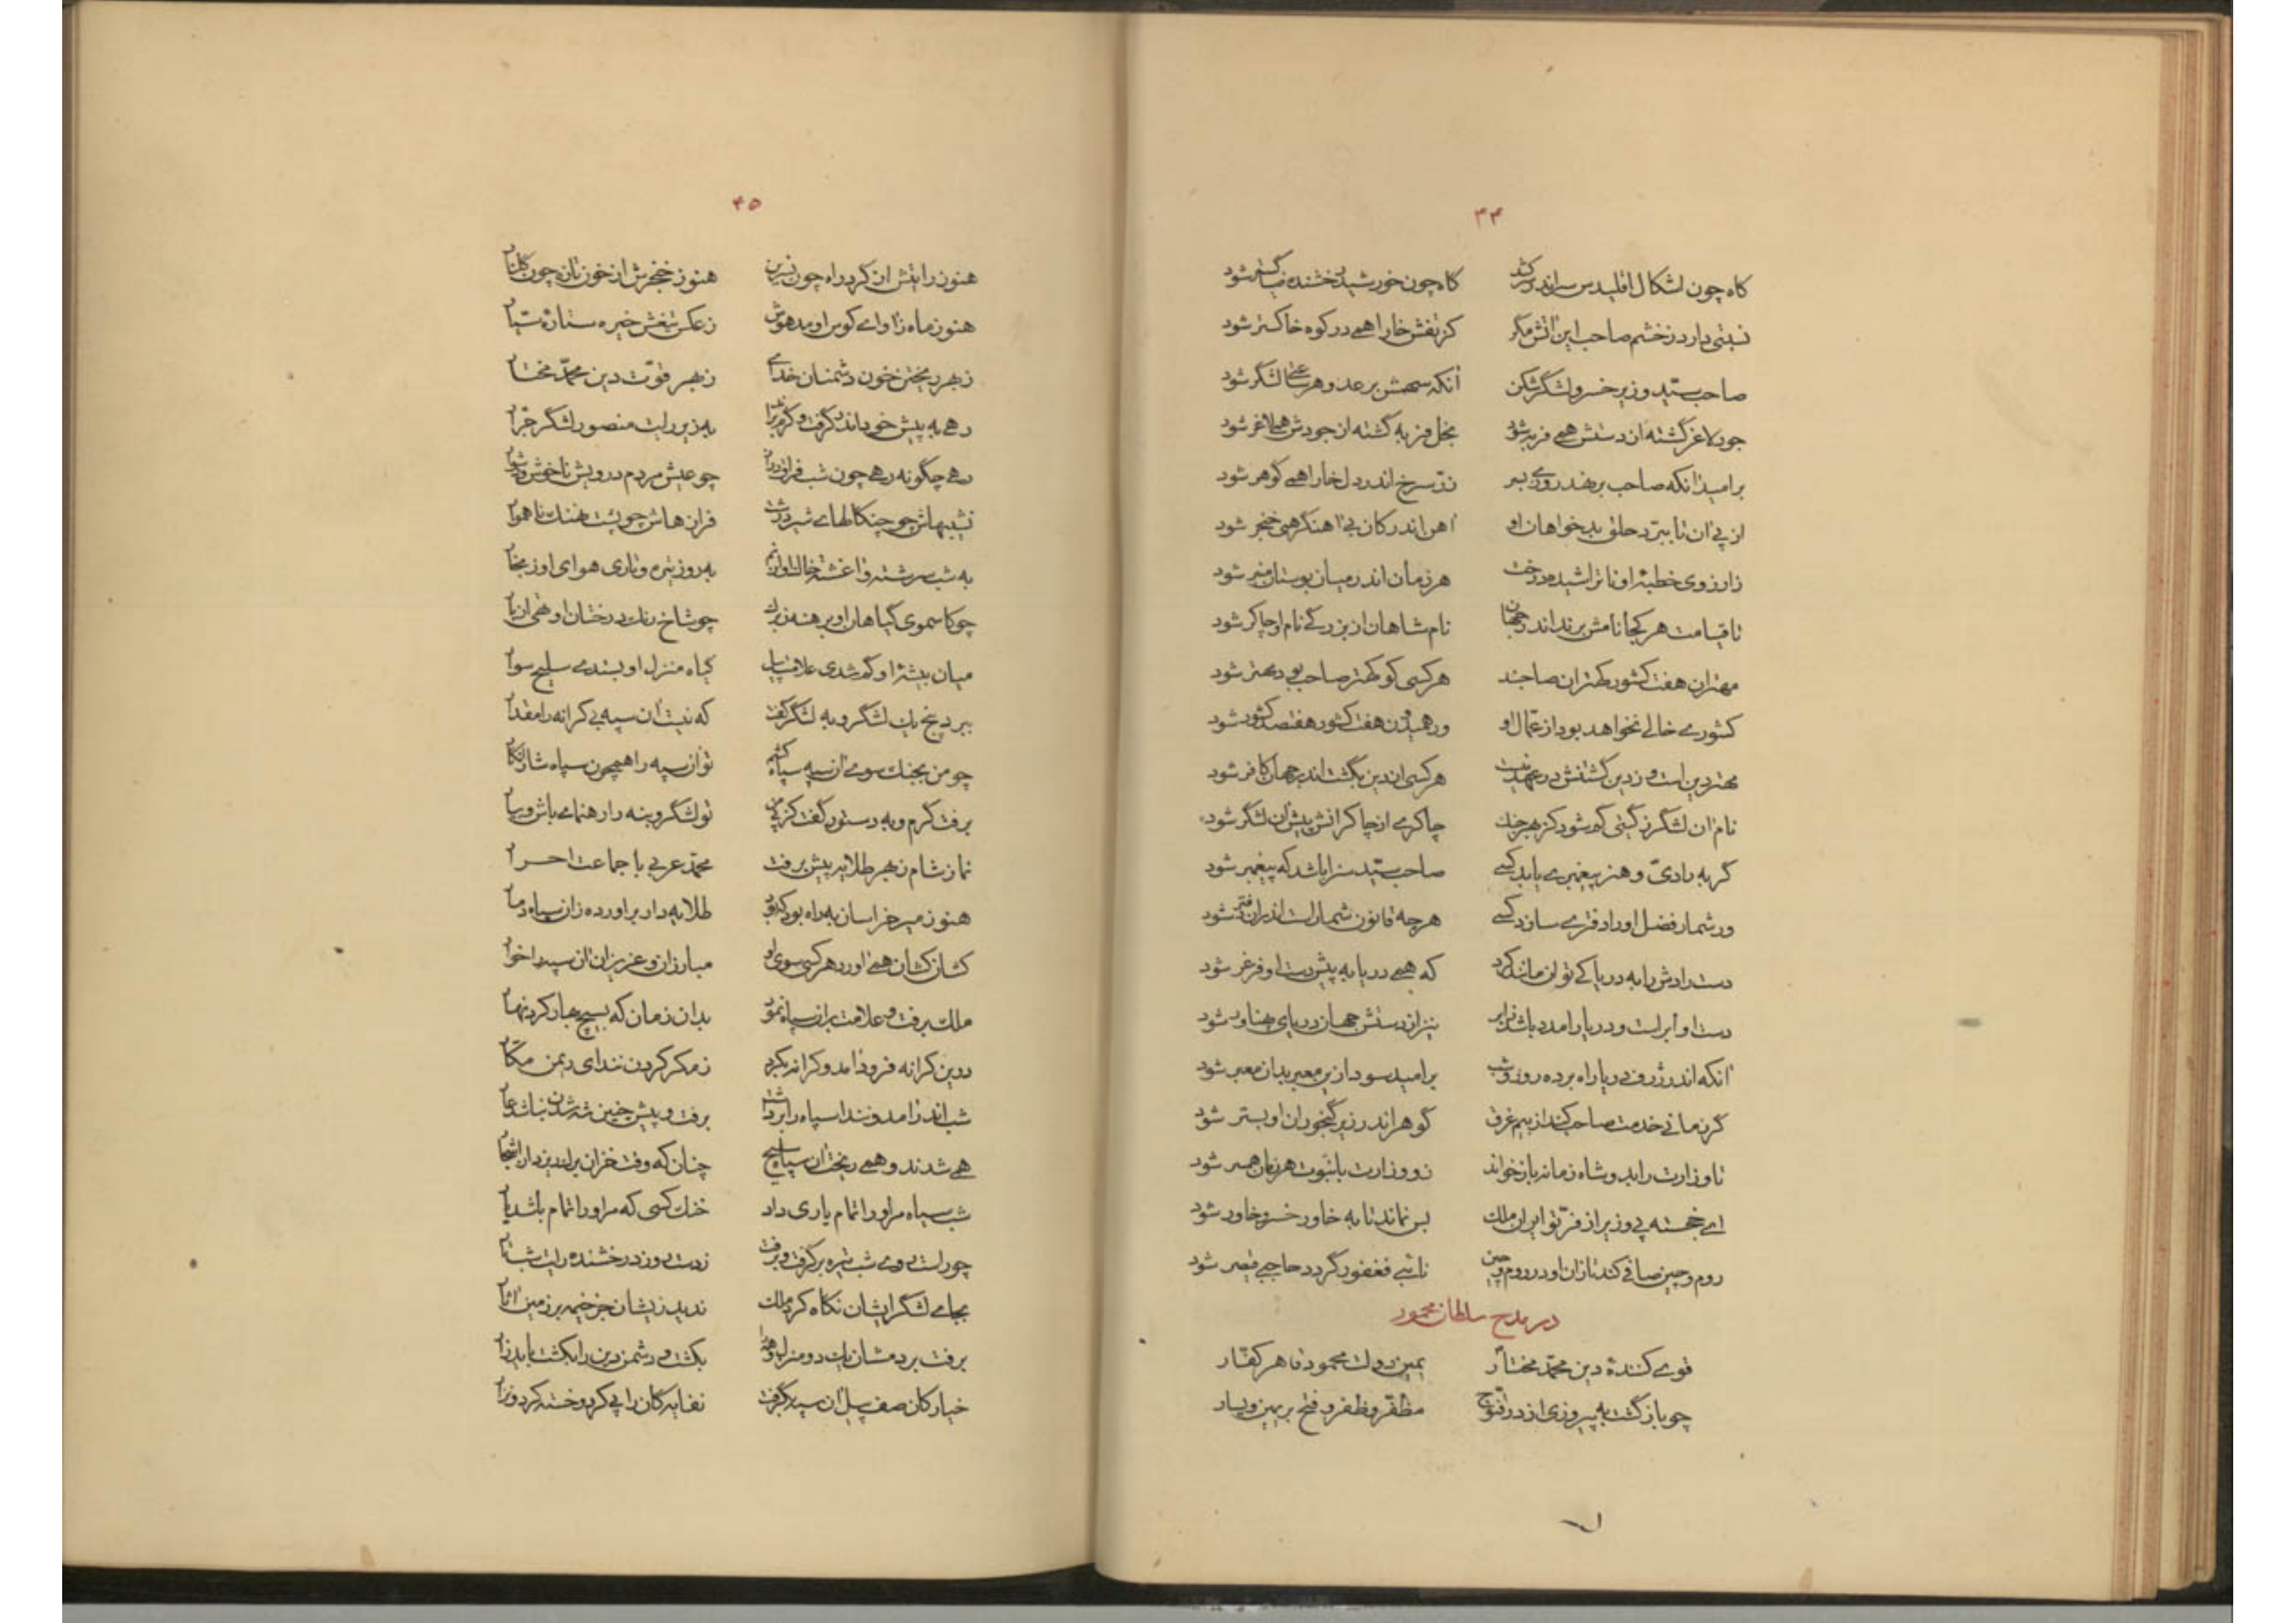 ۴۴
کاه چون اشکال اقلیدس سر اندر کشد کاه چون خورشید رخشنده ضیا گستر شود
نسبتی دارد ز خشم صاحب این اتش مگر کز تفش خارا همی در کوه خاکستر شود
صاحب سید وزیر خسرو لشگر شکن آنکه سهمش بر عدو هر ساعتی لشگر شود
جود لاغر گشته از دستش همی فربه شود بخل فربه گشته از جودش همی لاغر شود
بر امید آنکه صاحب بر نهد روزی بسر زر سرخ اندر دل خارا همی گوهر شود
از پی آن تا ببرد حلق بدخواهان او آهن اندر کان بی آهنگر همی خنجر شود
زارزوی خطبهٔ او نا تراشیده درخت هر زمان اندر میان بوستان منبر شود
تا قیامت هر کجا نامش برند اندر جهان نام شاهان از بزرگی نام او چاکر شود
مهتران هفت کشور کهتران صاحبند هر کسی کو کهتر صاحب بود مهتر شود
کشوری خالی نخواهد بود از عمال او ور همیدون هفت کشور هفتصد کشور شود
مهتر دین است و زدین گشتنش در عهد نیست هر کسی از دین بگشت اندر جهان کافر شود
نام ان لشگر ز گیتی گم شود کز بهر جنك چاکری از چاکرانش پیش آن لشگر شود
گر به رادی و هنر پیغمبری یابد کسی صاحب سید سزا باشد که پیغمبر شود
ور شمار فضل اورا دفتری سازد کسی هرچه قانون شمار است اندران دفتر شود
دست رادش را به دریا کی توان مانند کرد که همی دریا به پیش دست او فرغر شود
دست او ابر است و دریا را مدد باشد ز ابر نیز از دستش جهان دریای پهناور شود
آنکه اندر ژرف دریا راه برده روز و شب بر امید سود از بن معبر بدان معبر شود
گر زمانی خدمت صاحب کند از بیم غرق گوهر اندر زیر گنجوران او بستر شود
تا وزارت را بدو شاه زمانه باز خواند زو وزارت با نبوت هر زمان همسر شود
ای خجسته پی وزیر از فر تو ایران ملك بس نماند تا به خاور خسرو خاور شود
روم و چین صافی کند تازان او در روم و چین نائبی فغفور گردد حاجبی قیصر شود
در مدح سلطان محمود
قوی کنندهٔ دین محمد مختار یمین دولت محمود قاهر کفار
چو باز گشت به پیروزی از در قنوج مظفر و ظفر و فتح بر یمین و یسار
۴۵
هنوز رایتش از گرد راه چون نسرین هنوز خنجرش از خون تازه چون گلنار
هنوز ماه ز آوای کوس او مدهوش ز عکس تیغش خیره ستارهٔ سیار
ز بهر ریختن خون دشمنان خدای ز بهر قوت دین محمد مختار
رهی به پیش خود اندر گرفت و گرم براند به زیر رایت منصور لشگر جرار
رهی چگونه رهی چون شب فراق دراز چو عیش مردم درویش ناخوش و دشوار
نشیبهاش چو چنگالهای شیر درشت فرازهاش چو پشت نهنك ناهموار
به شب سرشته و آغشته خاك او از نم به روز تیره و تاری هوای او ز بخار
چو کاسموی گیاهان او برهنه ز برگ چو شاخ رنك درختان او تهی از بار
میان بیشهٔ او گم شدی علامت پیل گیاه منزل او بستدی سلیح سوار
ببرد پنج یك لشگر و به لشگر گفت که نیست آن سپه بی کرانه را مقدار
چو من بجنك سوی آن سپه سپاه کشم تو آن سپه را همچون سپاه شار انگار
برفت گرم و به دستور گفت کز پی من تو لشگر و بنه را رهنمای باش و بیار
نماز شام ز بهر طلایه پیش برفت محمد عربی با جماعت احرار
هنوز میر خراسان به راه بود که بود طلایه دار بر اورده زان سپاه دمار
کشان کشان همی اورد هر کسی سوی او مبارزان و عزیزان ان سپه را خوار
ملك برفت و علامت بران سپاه نمود بدان زمان که بسیچ نهار کرد نهار
درین کرانه فرود آمد و کرانه نکرد ز مکر کردن نندای ریمن مکار
شب اندر آمد و نندا سپاه را برداشت برفت و پیش چنین شه شدن نباشد عار
همی شدند و همی ریخت آن سپاه سلیح چنان که وقت خزان برگ ریزد از اشجار
شب سیاه مر اورا تمام یاری داد خنك کسی که مر اورا تمام باشد یار
چو راست روی شب تیره بر گرفت و برفت ز دست روز درخشنده رایت شب تار
بجای لشگر ایشان نگاه کرد ملك ندید زیشان جز خیمه بر زمین آثار
برفت بر دمشان یك دو منزل و همه را بکشت و دشمن دین را بکشت باید زار
خیارگان صف پیل آن سپه بگرفت نفایه گان را پی کرد و خسته کرد و نزار